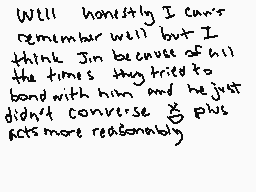 Well honestly I can't
remember well but I
think Jin because of all
the times they tried to
bond with him and he just
didn't converse plus
acts more reasonably